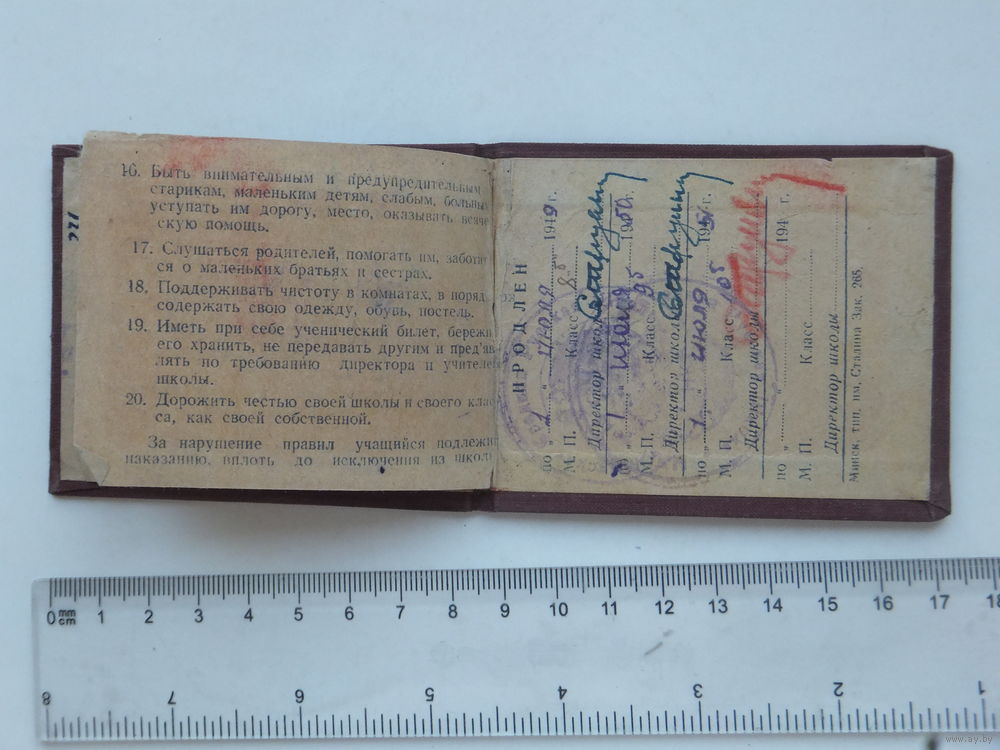 16. Быть внимательным и предупредительным
старикам, маленьким детям, слабым, больным
уступать им дорогу, место, оказывать всяче
скую помощь.
17. Слушаться родителей, помогать им, забот
ся о маленьких братьях и сестрах.
18. Поддерживать чистоту в комнатах, в поряд
содержать свою одежду, обувь, постель.
19. Иметь при себе ученический билет, бережн
его хранить, не передавать другим и пред'яв
лять по требованию директора и учителе
школы.
20. Дорожить честью своей школы и своего клас
са, как своей собственной.
За нарушение правил учащийся подлежит
наказанию, вплоть до исключения из школы
ПРОДЛЕН
по „1“ июля 1949 г.
М. П. Класс 8б
Директор школы
по „1“ июля 1950 г.
М. П. Класс 9б
Директор школы
по „1“ июля 1951 г.
М. П. Класс 10б
Директор школы
по „ “ 194 г.
М. П. Класс
Директор школы
Минск, тип. им. Сталина Зак. 265
0 mm 1 2 3 4 5 6 7 8 9 10 11 12 13 14 15 16 17 18
cm
8 7 6 5 4 3 2 1
www.ay.by